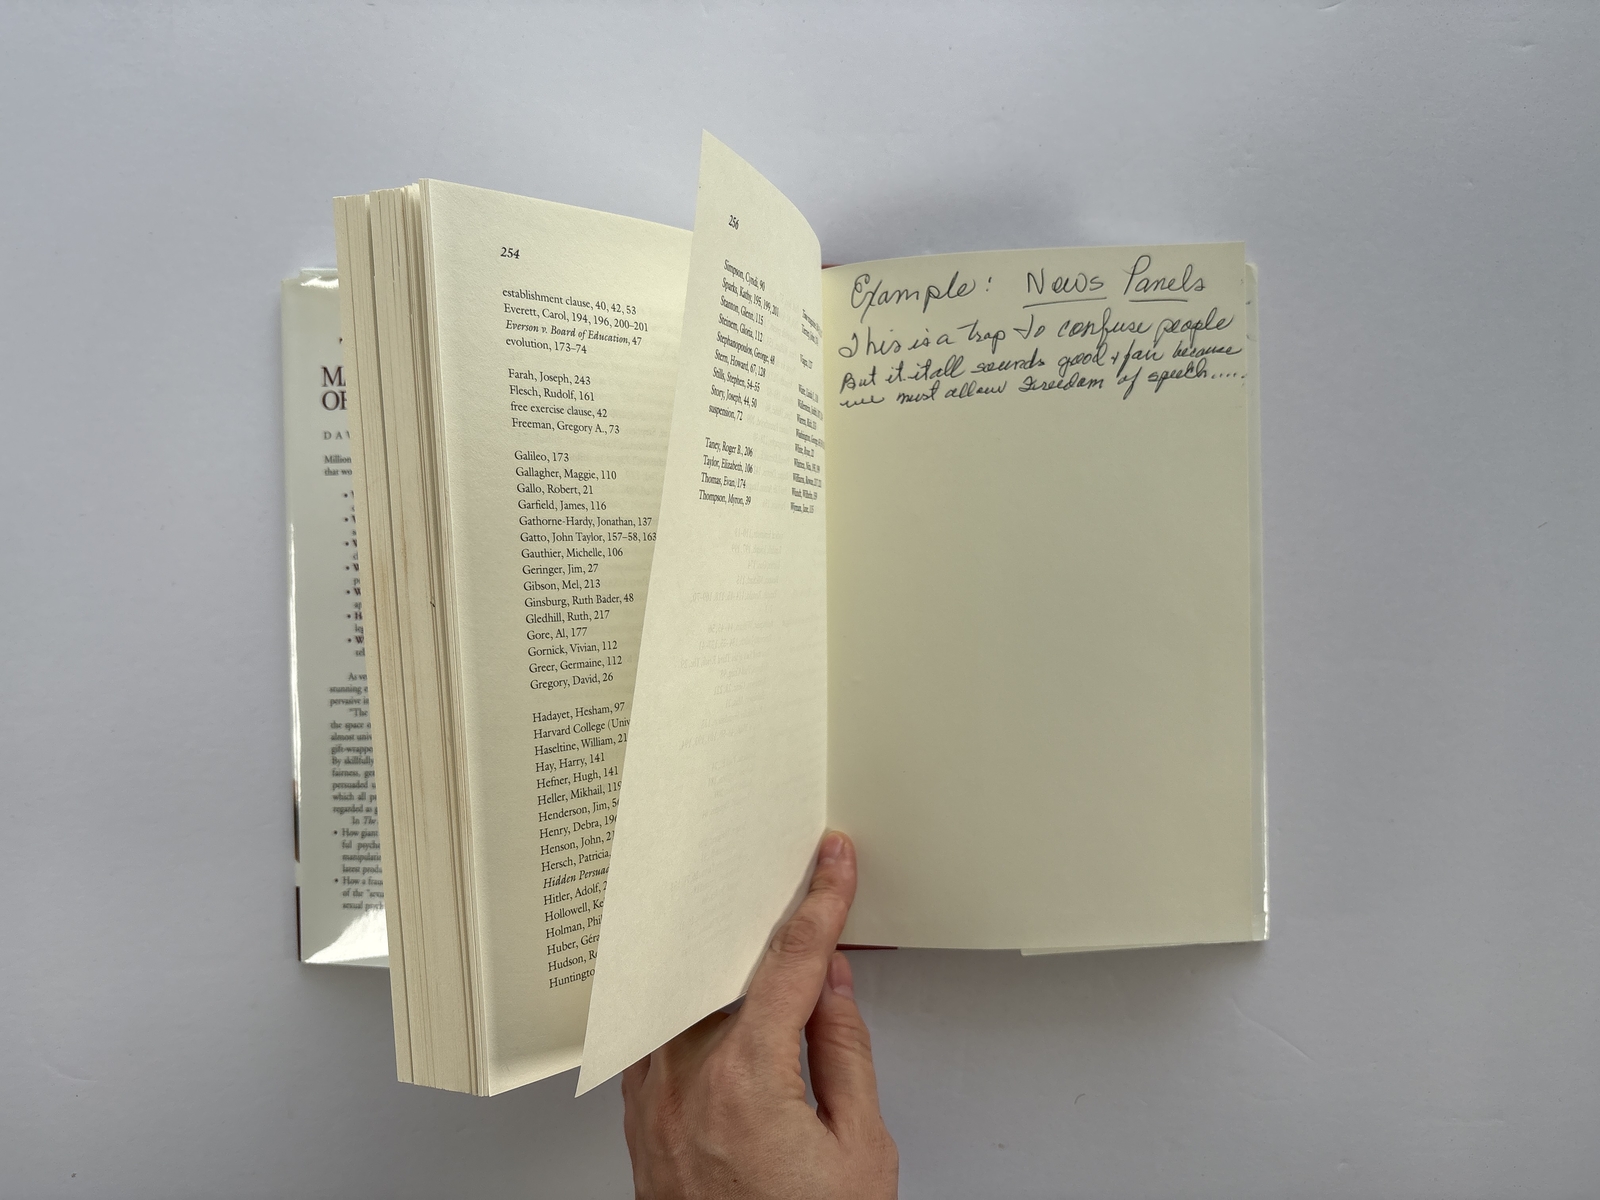 MA
OF
DAV
Million
that wo
As ve
stunning e
pervasive in
"The
the space o
almost univ
gift-wrappe
By skillfully
fairness, gen
persuaded u
which all pr
regarded as g
In The
• How giant
ful psych
manipulatio
latest produ
• How a frau
of the "sexu
sexual psych
254
establishment clause, 40, 42, 53
Everett, Carol, 194, 196, 200–201
Everson v. Board of Education, 47
evolution, 173–74
Farah, Joseph, 243
Flesch, Rudolf, 161
free exercise clause, 42
Freeman, Gregory A., 73
Galileo, 173
Gallagher, Maggie, 110
Gallo, Robert, 21
Garfield, James, 116
Gathorne-Hardy, Jonathan, 137
Gatto, John Taylor, 157–58, 163
Gauthier, Michelle, 106
Geringer, Jim, 27
Gibson, Mel, 213
Ginsburg, Ruth Bader, 48
Gledhill, Ruth, 217
Gore, Al, 177
Gornick, Vivian, 112
Greer, Germaine, 112
Gregory, David, 26
Hadayet, Hesham, 97
Harvard College (Univ
Haseltine, William, 21
Hay, Harry, 141
Hefner, Hugh, 141
Heller, Mikhail, 119
Henderson, Jim, 5
Henry, Debra, 19
Henson, John, 21
Hersch, Patricia,
Hidden Persuad
Hitler, Adolf, 2
Hollowell, Ke
Holman, Phil
Huber, Géra
Hudson, Ro
Huntingto
256
Simpson, Cyndi, 90
Sparks, Kathy, 195, 199, 201
Stanton, Glenn, 115
Steinem, Gloria, 112
Stephanopoulos, George, 48
Stern, Howard, 67, 128
Stills, Stephen, 54–55
Story, Joseph, 44, 50
suspension, 72
Taney, Roger B., 206
Taylor, Elizabeth, 106
Thomas, Evan, 174
Thompson, Myron, 39
Example: News Panels
This is a trap to confuse people
But it it all sounds good & fair because
we must allow freedom of speech.....